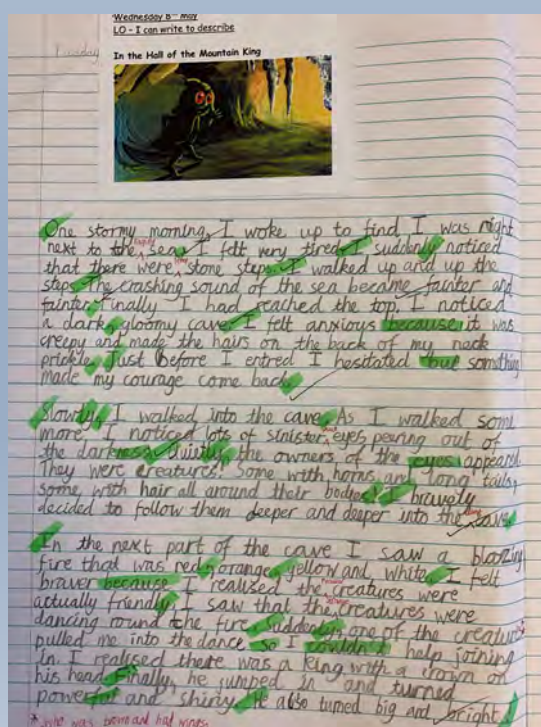 Wednesday 8th May
LO - I can write to describe
Tuesday
In the Hall of the Mountain King
One stormy morning, I woke up to find I was right
next to the sea. I felt very tired. I suddenly noticed
that there were stone steps. I walked up and up the
steps. The crashing sound of the sea became fainter and
fainter. Finally I had reached the top. I noticed
a dark, gloomy cave. I felt anxious because it was
creepy and made the hairs on the back of my nack
prickle. Just before I entred I hesitated but something
made my courage come back.
Slowly, I walked into the cave. As I walked some
more, I noticed lots of sinister eyes, peering out of
the darkness. Quietly, the owners of the eyes appeard.
They were creatures! Some with horns and long tails,
some with hair all around their bodies! I bravely
decided to follow them deeper and deeper into the cave.
In the next part of the cave I saw a blazing
fire that was red, orange, yellow and white. I felt
braver because I realised the creatures were
actually friendly. I saw that the creatures were
dancing round the fire. Suddenly, one of the creatures
pulled me into the dance so I couldn't help joining
in. I realised there was a king with a crown on
his head. Finally, he jumped in and turned
powerful and shiny. He also turned big and bright.
* who was brown and had wings